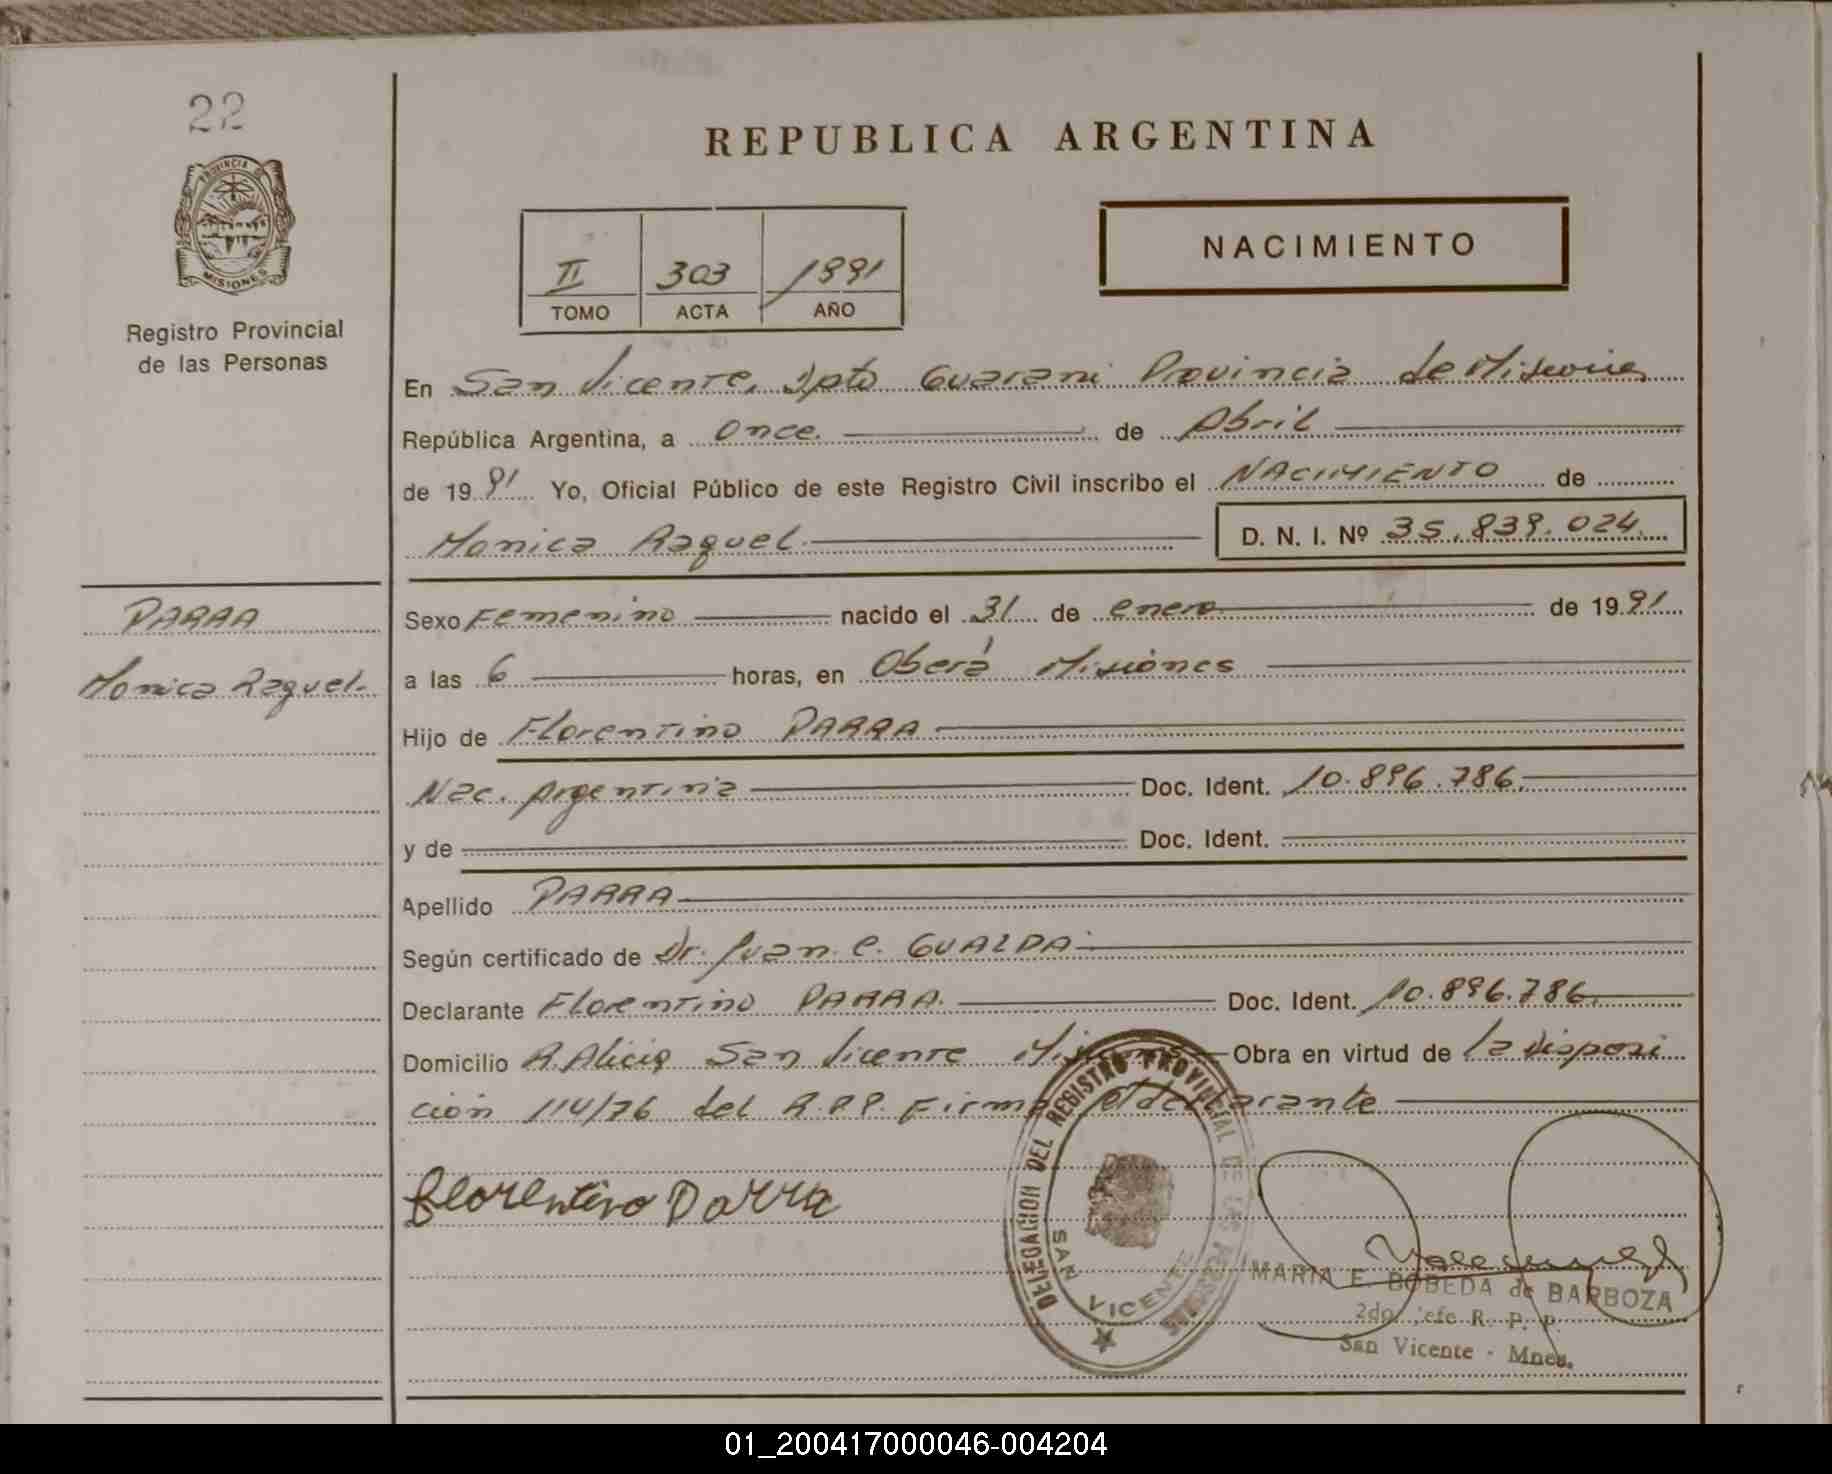 22
PROVINCIA DE
MISIONES
Registro Provincial
de las Personas
REPUBLICA ARGENTINA
II 303 1991
TOMO ACTA AÑO
NACIMIENTO
En San Vicente, Dpto Guarani Provincia de Misiones
República Argentina, a once. de Abril
de 19 91 Yo, Oficial Público de este Registro Civil inscribo el NACIMIENTO de
Monica Raquel D. N. I. Nº 35.839.024.
PARRA
Monica Raquel.
Sexo Femenino nacido el 31 de enero de 19 91
a las 6 horas, en Oberá Misiones
Hijo de Florentino PARRA
Nac. Argentina Doc. Ident. 10.896.786.
y de Doc. Ident.
Apellido PARRA
Según certificado de Dr. Juan C. GUALDA
Declarante Florentino PARRA. Doc. Ident. 10.896.786.
Domicilio R. Alicia San Vicente Misiones Obra en virtud de la disposi
ción 114/76 del R.P.P. Firma el declarante
Florentino Parra
DELEGACION DEL REGISTRO PROVINCIAL DE LAS PERSONAS
SAN VICENTE
MARIA E. BOBEDA de BARBOZA
2do. Jefe R. P. P.
San Vicente - Mnes.
01_200417000046-004204